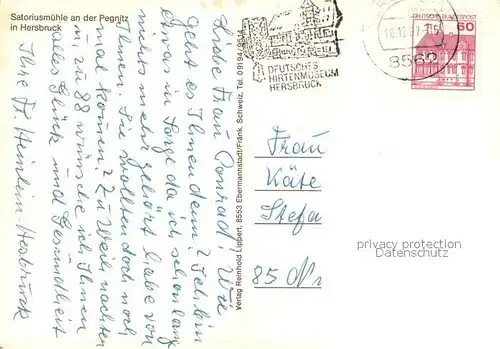 Satoriusmühle an der Pegnitz
in Hersbruck
Liebe Frau Conrad! Wie
geht es Ihnen denn? Ich bin
etwas in Sorge da ich schon lang
nichts mehr gehört habe von
Ihnen. Sie wollten doch noch
mal kommen? Zu Weihnachten
u. zu 88 wünsche ich Ihnen
alles Glück und Gesundheit
Ihre Fr. Heinlein-Hersbruck
Verlag Reinhold Lippert, 8553 Ebermannstadt/Fränk. Schweiz, Tel. 09194/9854
DEUTSCHES
HIRTENMUSEUM
HERSBRUCK
8562
DEUTSCHE BUNDESPOST
60
Frau
Käte
Stefa
85 N
privacy protection
Datenschutz